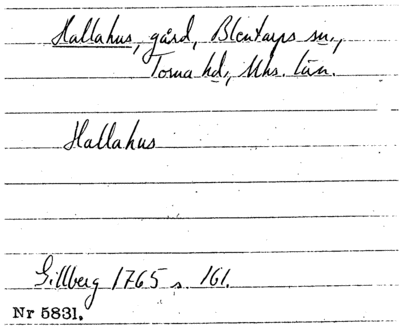 Hallahus, gård, Blentarps sn.,
Torna hd., Mhs. län.
Hallahus
Gillberg 1765 s. 161.
Nr 5831.